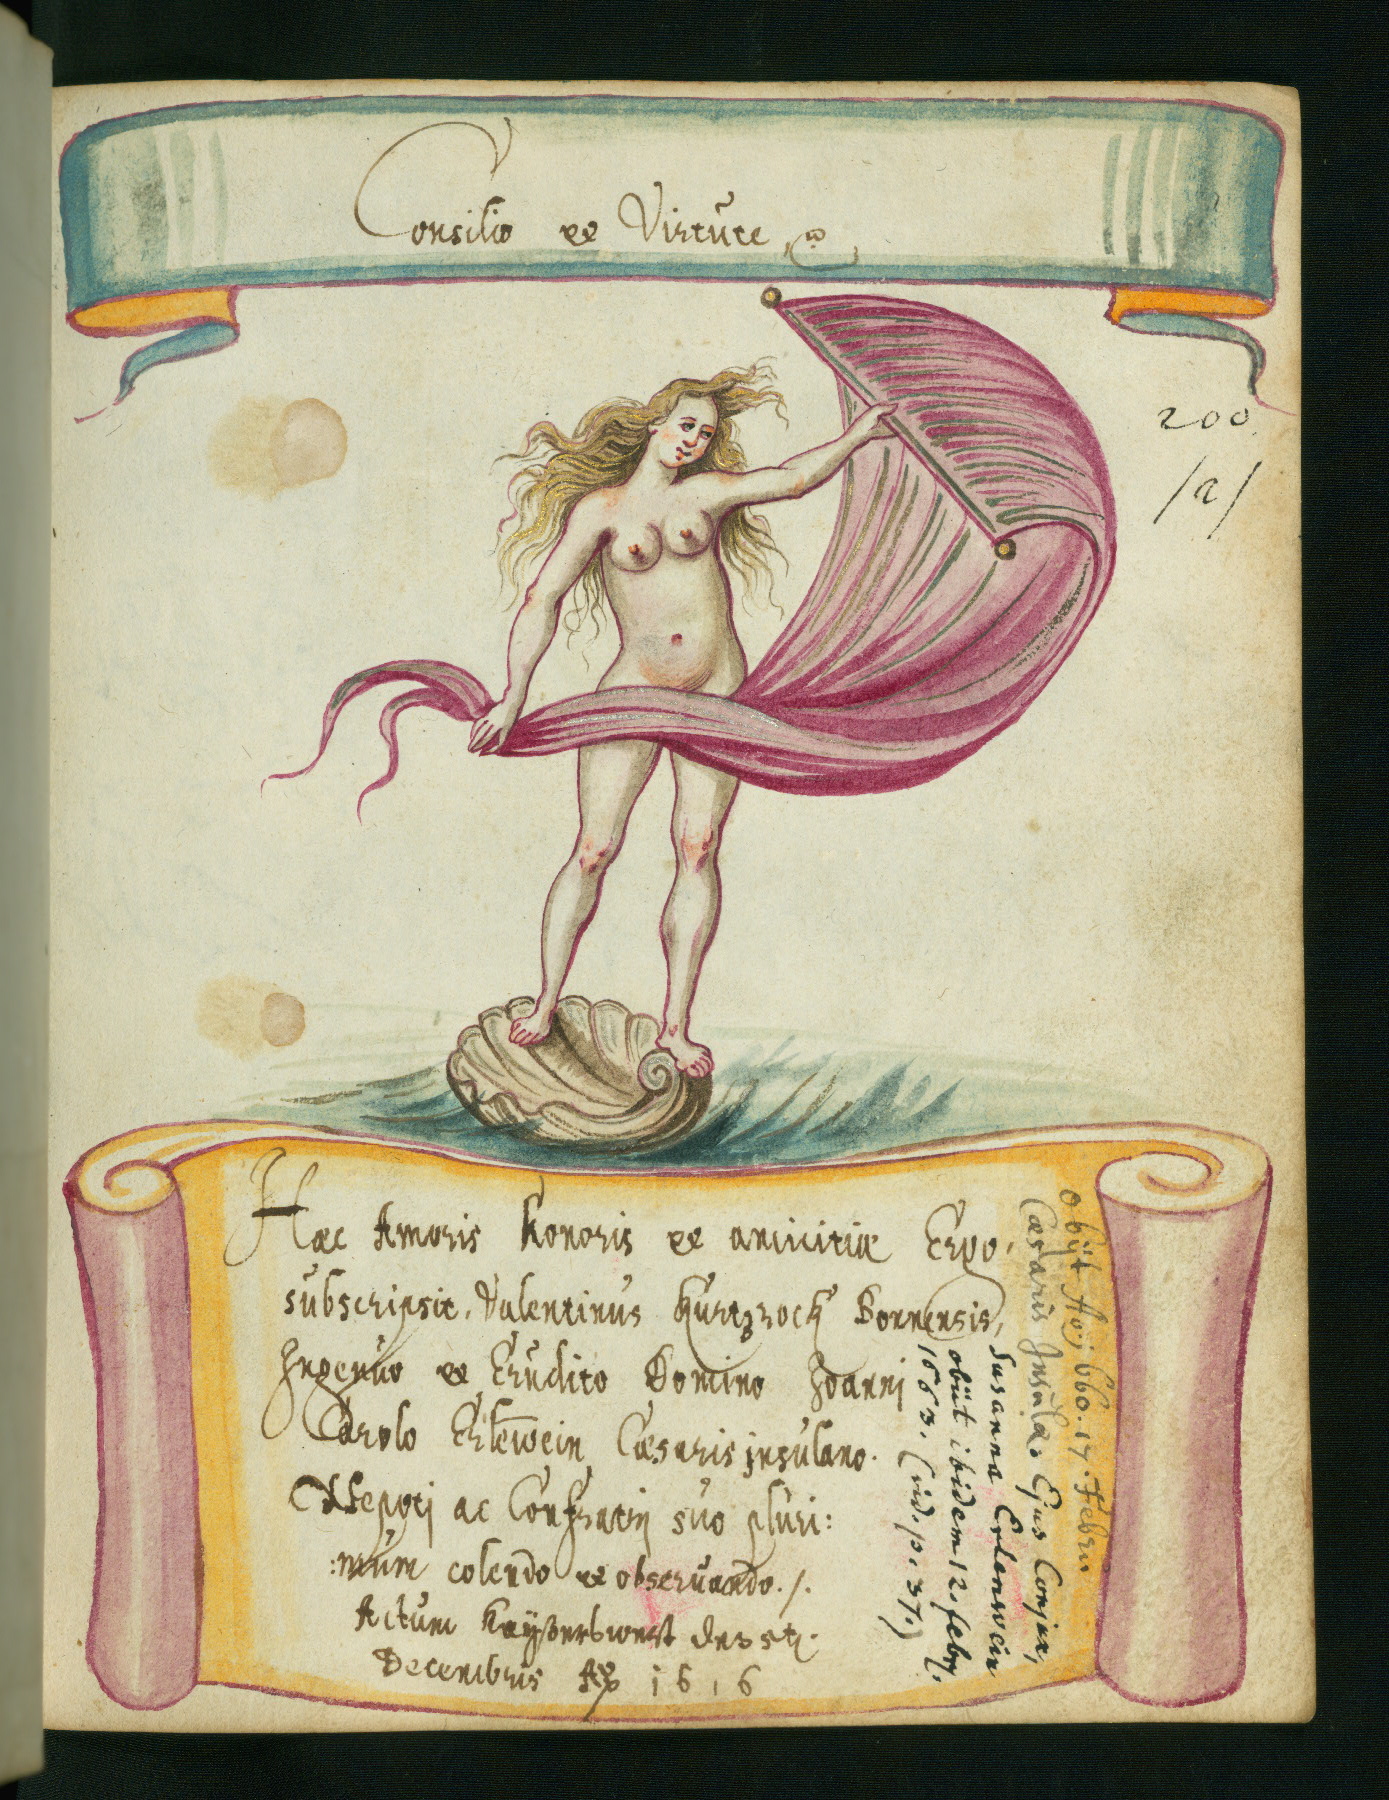 Consilio et Virtute
200
/a/
Hæc Amoris honoris et amicitiæ Ergo,
subscripsit, Valentinus Kurtzrock Bonnensis,
Ingenuo et Erudito Domino Joanni
Carolo Erlewein Cæsaris insulano.
Nepoti ac Confratri suo pluri:
:mum colendo et observando./.
Actum Kaÿserswert
Decembris Aõ 1616
obijt Aõ 1660. 17. Febru
Cæsaris Insulæ. Ejus Conjux,
Susanna Erlenwein
obiit ibidem 12. febr.
1663. (vid. p. 37.)